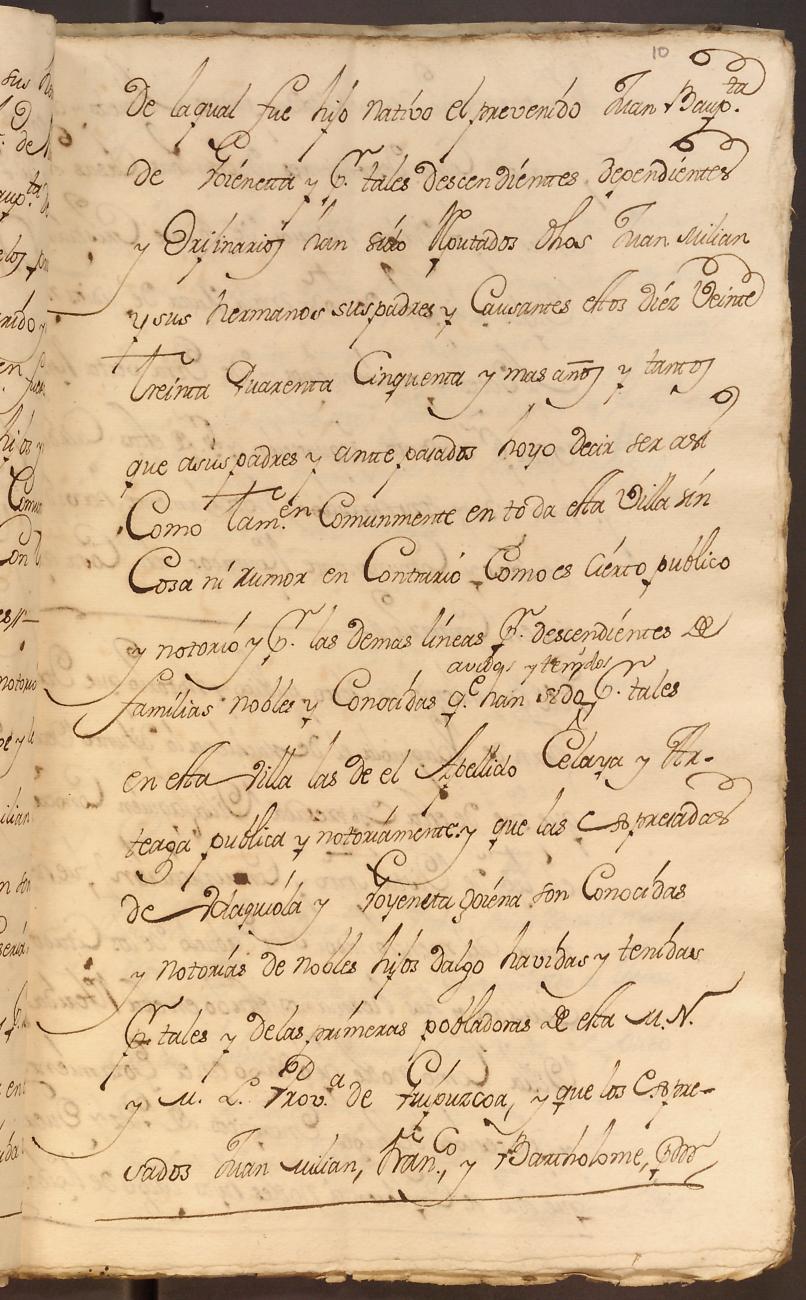 10
De la qual fue hijo nativo el prevenido Juan Baup.ta
de Goienetta y P.r tales descendienttes dependientes
y Orijinarios han sido Reputados dhos Juan Milian
y sus hermanos sus padres y Causantes estos diez Veinte
treinta Quarenta Cinquenta y mas años y tantos
que a sus padres y ante pasados hoyo decir ser asi
Como tam.en Comunmente en toda esta Villa sin
Cosa ni rumor en Contrario Como es Cierto publico
y notorio y P.r las demas lineas P.r descendientes de
avidos y tenidos
familias nobles y Conocidas q.e han sido P.r tales
en esta Villa las de el Apellido Celaya y Ar-
teaga publica y notoriamente y que las Expresadas
de Olaquiola y Goyeneta Goiena son Conocidas
y notorias de nobles hijos dalgo havidas y tenidas
P.r tales y de las primeras pobladoras de esta M. N.
y M. L. Prov.a de Guipuzcoa, y que los Expre-
sados Juan Milian, Fran.co, y Bartholome,